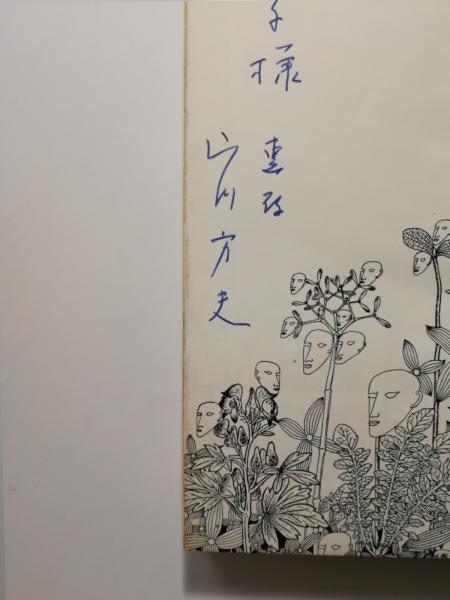 子様 恵存
山川方夫